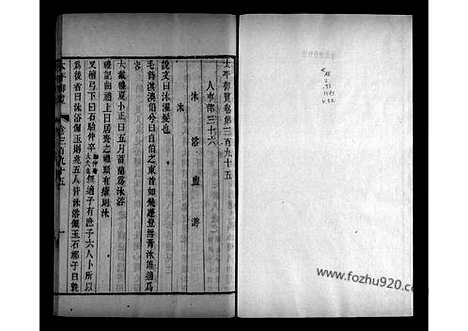 太平御覽卷第三百九十五
人事部三十六
沐 浴 盥 游
沐
說文曰沐濯髮也
毛詩淇澳伯兮曰自伯之東首如飛蓬豈無膏沐誰適爲
容
大戴禮夏小正曰五月蓄蘭爲沐浴
禮記曲禮上曰居喪之禮頭有瘡則沐
又檀弓下曰石駘仲卒無適子有庶子六人卜所以
爲後者曰沐浴佩玉則兆五人皆沐浴佩玉石祁子曰孰
太平御覽 卷三百九十五 一
www.fozhu920.com